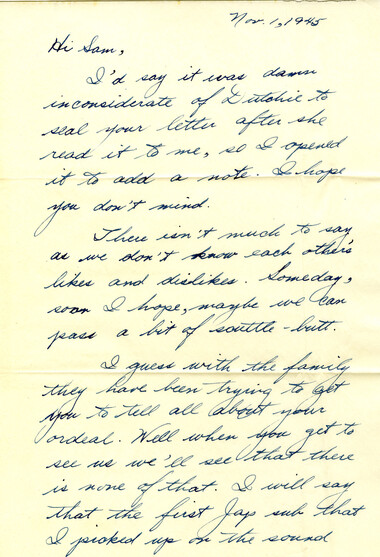 Nov. 1, 1945
Hi Sam,
I'd say it was damn
inconsiderate of Dutchie to
seal your letter after she
read it to me, so I opened
it to add a note. I hope
you don't mind.
There isn't much to say
as we don't know each other's
likes and dislikes. Someday,
soon I hope, maybe we can
pass a bit of scuttle-butt.
I guess with the family
they have been trying to get
you to tell all about your
ordeal. Well when you get to
see us we'll see that there
is none of that. I will say
that the first Jap sub that
I picked up on the sound